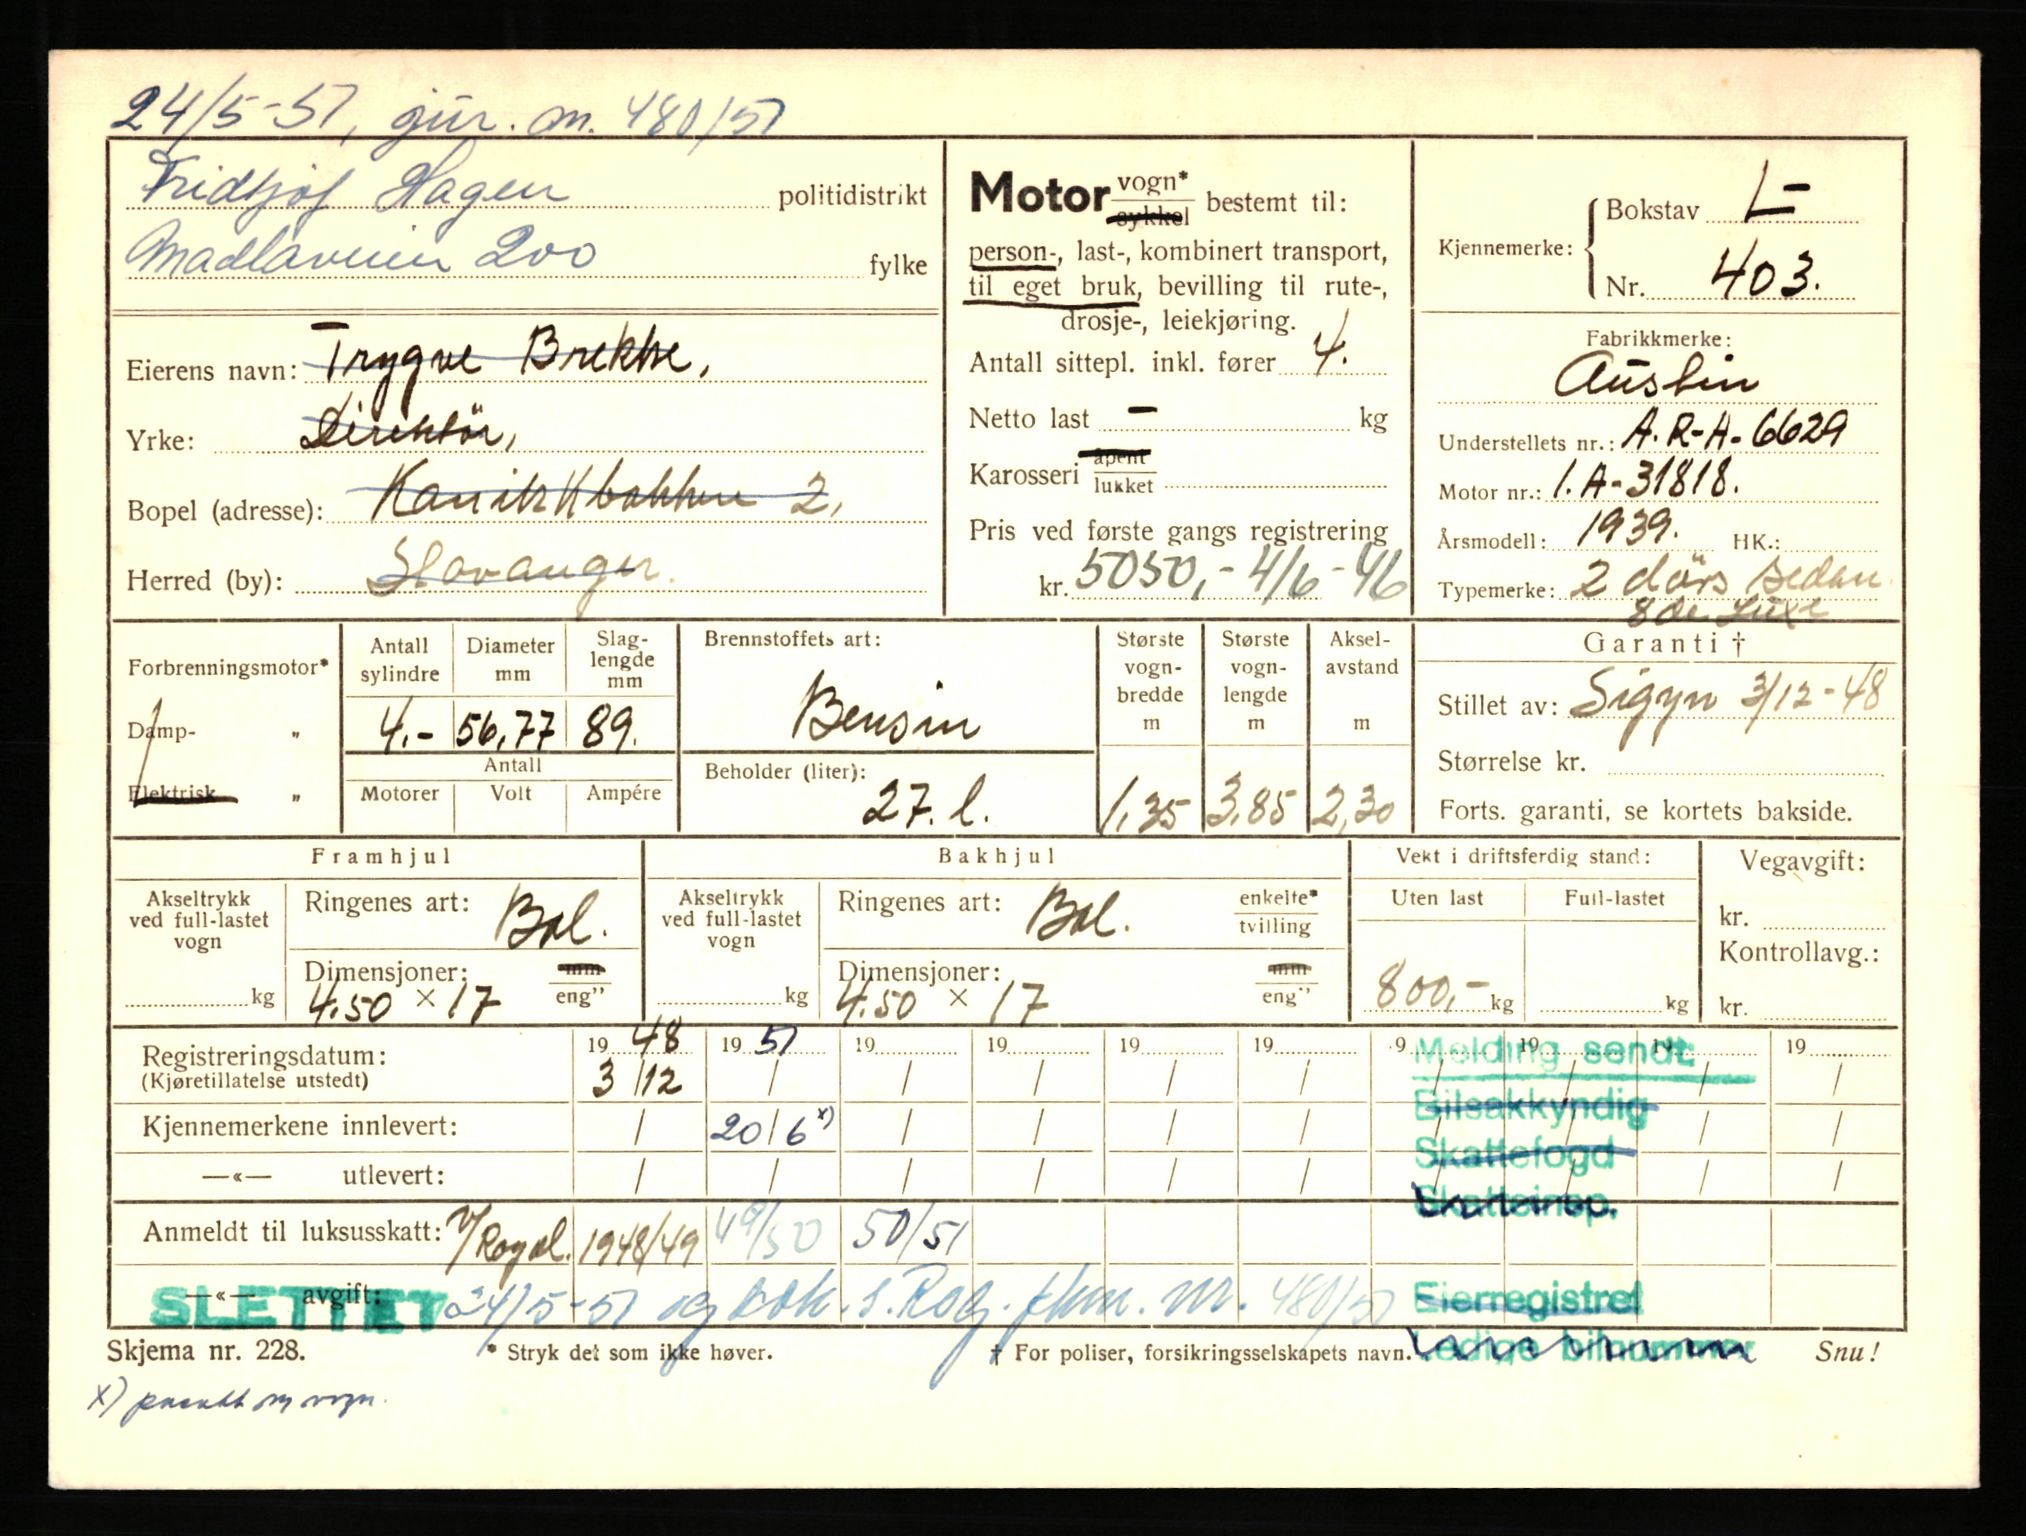 24/5-51, gür. an. 480/51
Fridtjof Hagen politidistrikt
Madlaveien 200 fylke
Eierens navn: Trygve Brekke,
Yrke: Direktör,
Bopel (adresse): Kanikkbakken 2,
Herred (by): Stavanger.
Motor vogn* sykkel bestemt til:
person-, last-, kombinert transport,
til eget bruk, bevilling til rute-,
drosje-, leiekjøring.
Antall sittepl. inkl. fører 4.
Netto last – kg
Karosseri åpent lukket
Pris ved første gangs registrering
kr. 5050,- 4/6-46
Kjennemerke: Bokstav L-
Nr. 403.
Fabrikkmerke:
Austin
Understellets nr.: A.R-A-6629
Motor nr.: 1.A-31818.
Årsmodell: 1939. HK.:
Typemerke: 2 dörs sedan
8 de Luxe
Forbrenningsmotor*
Damp- „
Elektrisk „
Antall sylindre Diameter mm Slag-lengde mm
4.- 56,77 89.
Antall
Motorer Volt Ampére
Brennstoffets art:
Bensin
Beholder (liter):
27. l.
Største vogn-bredde m Største vogn-lengde m Aksel-avstand m
1,35 3,85 2,30
Garanti †
Stillet av: Sigyn 3/12-48
Størrelse kr.
Forts. garanti, se kortets bakside.
Framhjul
Akseltrykk ved full-lastet vogn
kg
Ringenes art: Bal.
Dimensjoner: mm eng"
4.50 × 17
Bakhjul
Akseltrykk ved full-lastet vogn
kg
Ringenes art: Bal. enkelte* tvilling
Dimensjoner: mm eng"
4.50 × 17
Vekt i driftsferdig stand:
Uten last Full-lastet
800,- kg kg
Vegavgift:
kr.
Kontrollavg.:
kr.
19 48 19 51 19 19 19 19 19 19 19 19
Registreringsdatum:
(Kjøretillatelse utstedt) 3/12 / / / / / / / / /
Kjennemerkene innlevert: / 20/6 x) / / / / / / / /
—«— utlevert: / / / / / / / / / /
Anmeldt til luksusskatt: v/Rogal. 1948/49 49/50 50/51
—«— avgift: 24/5-51 og bok. s. Rog. fknr. nr. 480/51
SLETTET
Melding sendt:
Bilsakkyndig
Skattefogd
Skatteinsp.
Eierregistret
Ledige bilnummer
Skjema nr. 228. * Stryk det som ikke høver. † For poliser, forsikringsselskapets navn. Snu!
x) pasatt ny vogn.